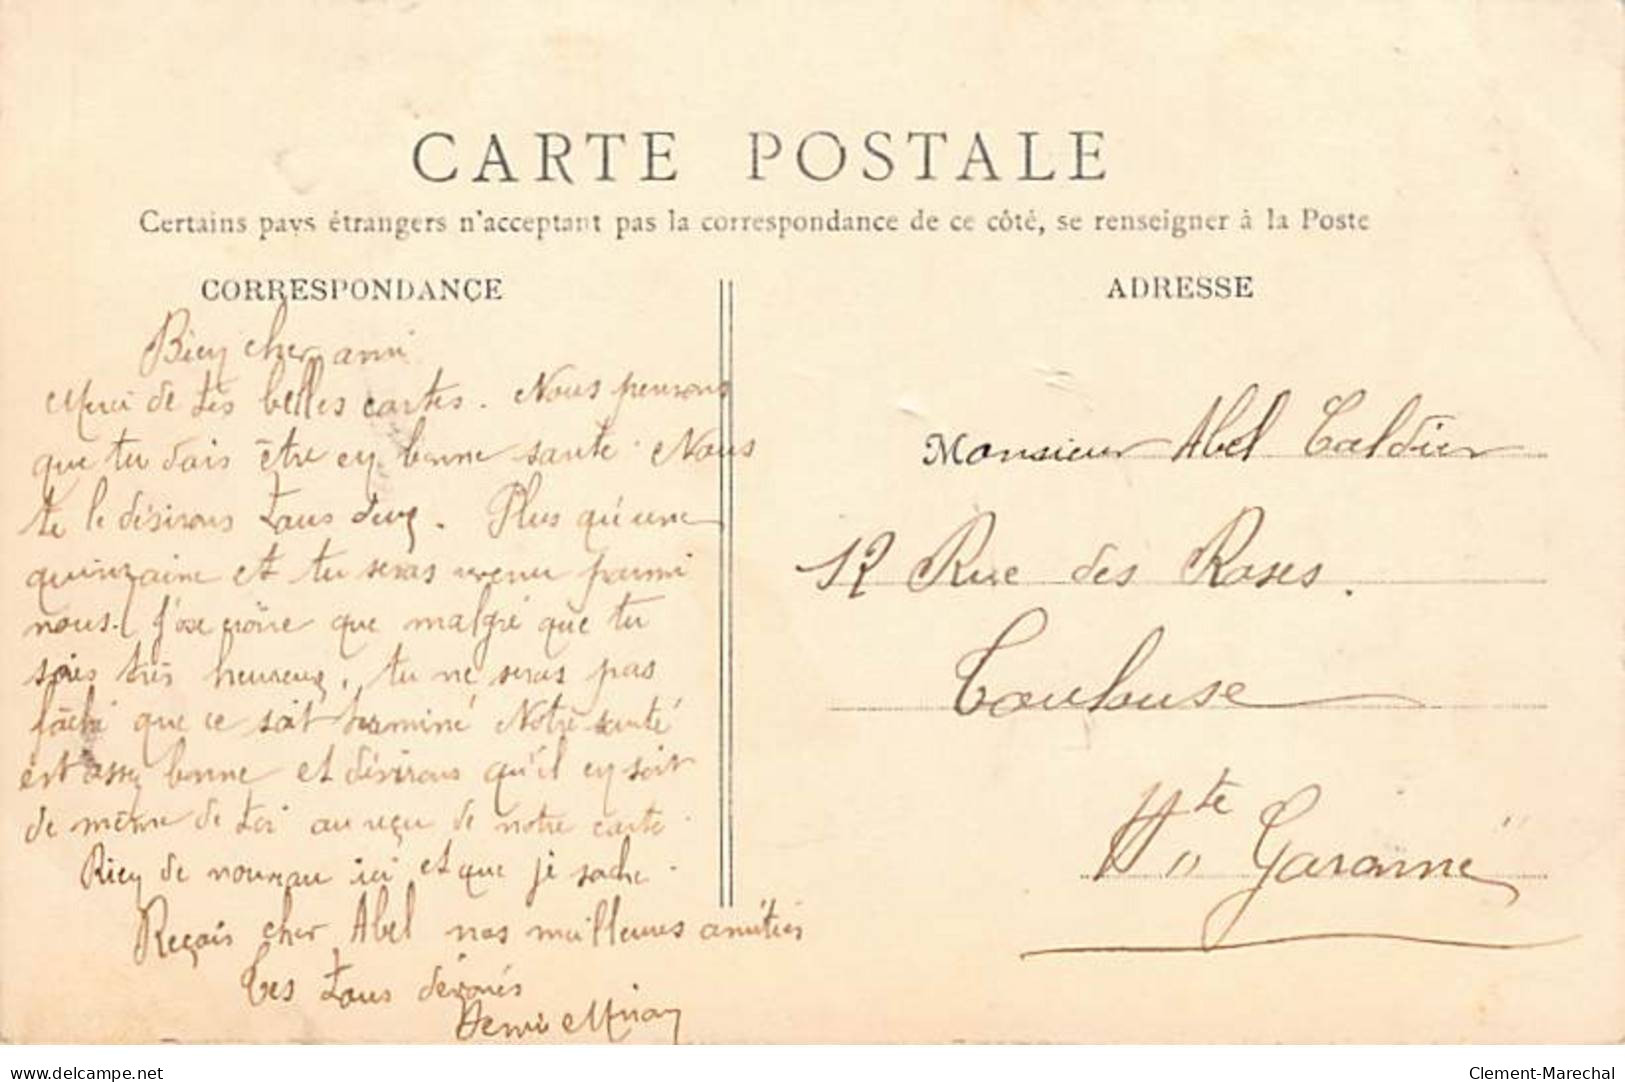 CARTE POSTALE
Certains pays étrangers n'acceptant pas la correspondance de ce côté, se renseigner à la Poste
CORRESPONDANCE
Bien cher ami
Merci de tes belles cartes. Nous pensons
que tu dois être en bonne santé. Nous
te le désirons tous deux. Plus qu'une
quinzaine et tu seras revenu parmi
nous. J'ose croire que malgré que tu
sois très heureux, tu ne seras pas
fâché que ce soit terminé Notre santé
est assez bonne et désirons qu'il en soit
de même de toi au reçu de notre carte.
Rien de nouveau ici et que je sache.
Reçois cher Abel nos meilleures amitiés
Tes tous dévoués
Henri
ADRESSE
Monsieur Abel
12 Rue des Roses.
Toulouse
Hte Garonne
delcampe.net
Clement-Marechal